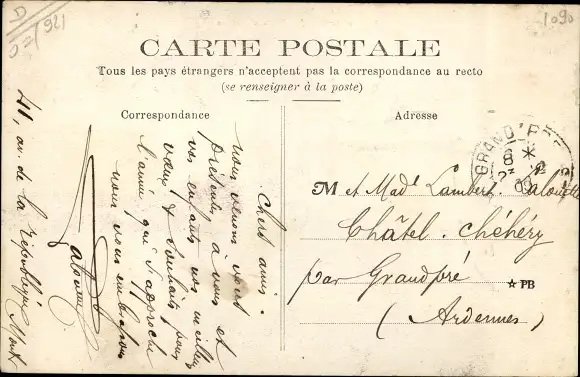 1090
CARTE POSTALE
Tous les pays étrangers n'acceptent pas la correspondance au recto
(se renseigner à la poste)
Correspondance
Chers amis.
nous venons vous
présenter à vous et
vos enfants nos meilleurs
vœux & souhaits pour
l'année qui s'approche
nous vous embrassons
41, av. de la République
Adresse
GRAND'P
8
M et Made Lambert
Châtel. Chéhéry
par Grandpré
PB
(Ardennes)